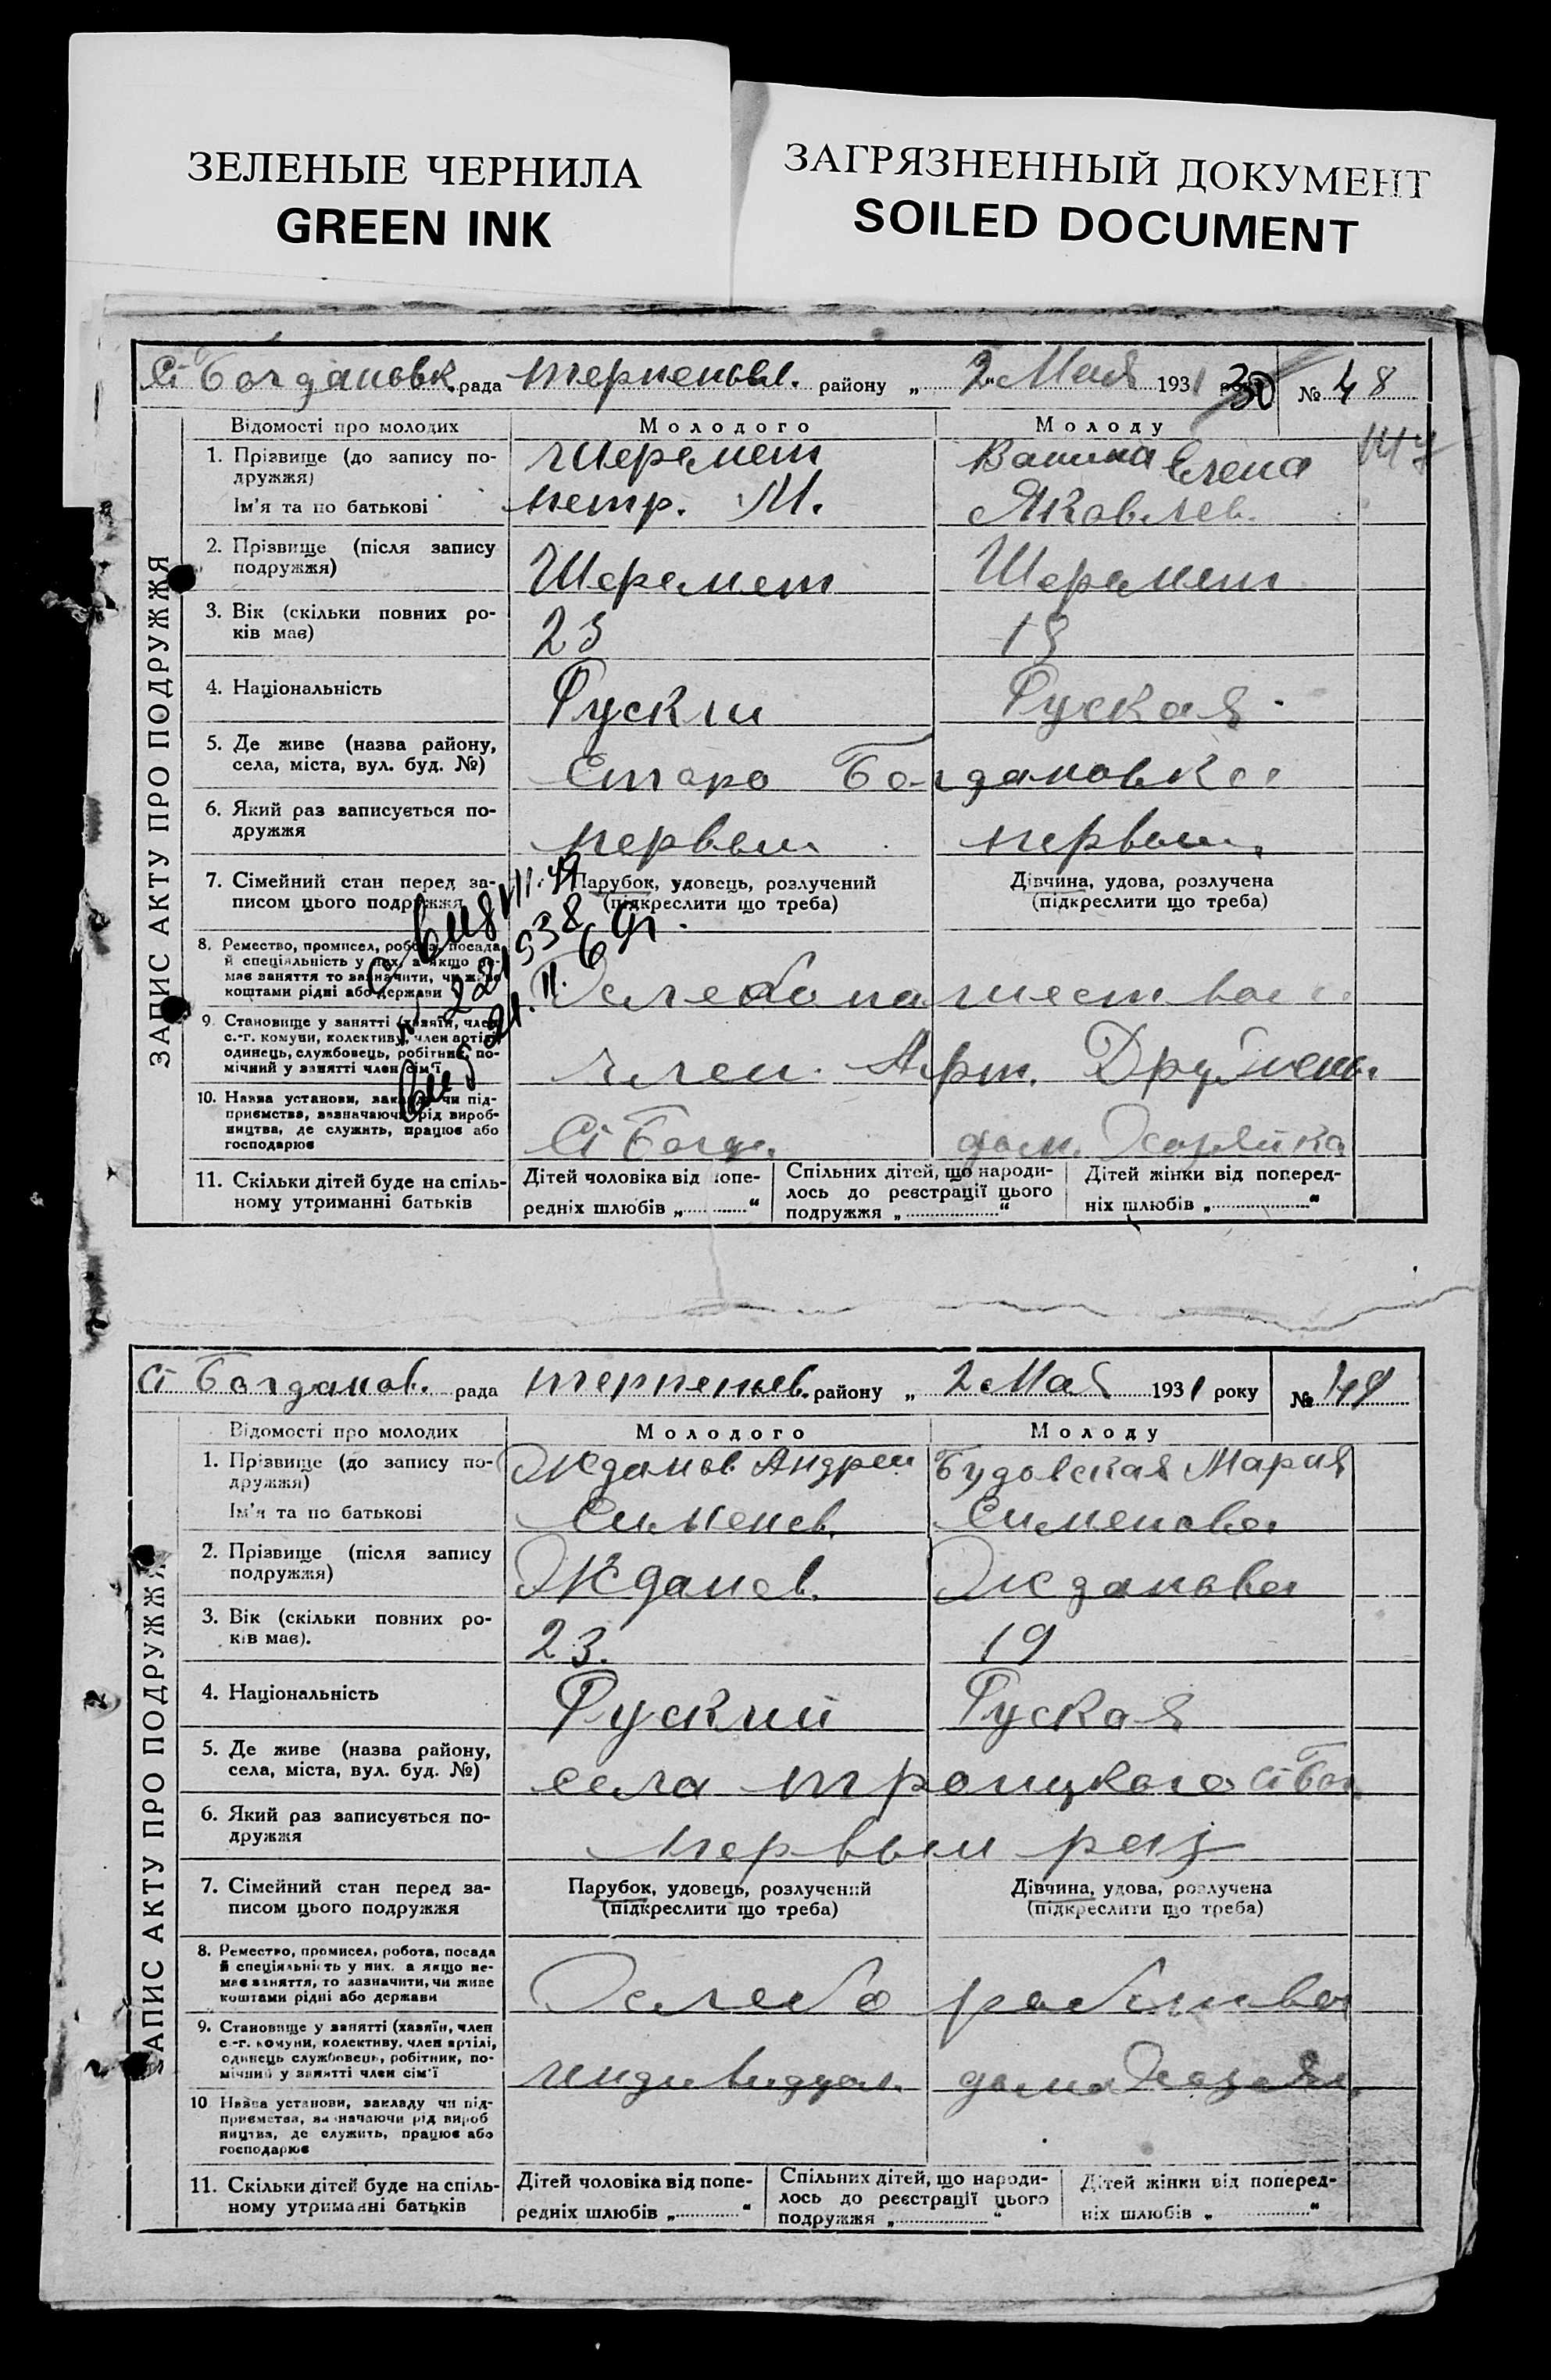 ЗЕЛЕНЫЕ ЧЕРНИЛА
GREEN INK
ЗАГРЯЗНЕННЫЙ ДОКУМЕНТ
SOILED DOCUMENT
Ст Богдановк. рада терпеновл. району „ 2" Мая 1931 30 № 48
ЗАПИС АКТУ ПРО ПОДРУЖЖЯ
Відомості про молодих Молодого Молоду
1. Прізвище (до запису по- Шеремет Елена
дружжя)
Ім'я та по батькові петр. М. Яковлев.
2. Прізвище (після запису
подружжя) Шеремет Шеремет
3. Вік (скільки повних ро-
ків має) 23
4. Національність Руский Руская
5. Де живе (назва району,
села, міста, вул. буд. №) Старо Богдановка
6. Який раз записується по-
дружжя первый первый
7. Сімейний стан перед за- Парубок, удовець, розлучений Дівчина, удова, розлучена
писом цього подружжя (підкреслити що треба) (підкреслити що треба)
8. Ремество, промисел, робота, посада
й спеціяльність у них, а якщо не-
має заняття то зазначити, чи живе
коштами рідні або держави Хлебопашество
9. Становище у занятті (хазяїн, член
с.-г. комуни, колективу, член артілі,
одинець, службовець, робітник, по-
мічний у занятті член сім'ї член Арт.
10. Назва установи, закладу чи під-
приємства, зазначаючи рід вироб-
ництва, де служить, працює або
господарює Ст Богд. дом. Хозяйка
11. Скільки дітей буде на спіль- Дітей чоловіка від попе- Спільних дітей, що народи- Дітей жінки від поперед-
ному утриманні батьків редніх шлюбів „ “ лось до реєстрації цього ніх шлюбів „ “
подружжя „ “
Ст Богданов. рада терпеньев. району „ 2 Мая 1931 року № 49
ЗАПИС АКТУ ПРО ПОДРУЖЖЯ
Відомості про молодих Молодого Молоду
1. Прізвище (до запису по- Жданов Андрей Будовская Мария
дружжя)
Ім'я та по батькові Сименов. Сименова
2. Прізвище (після запису
подружжя) Жданов. Жданова
3. Вік (скільки повних ро-
ків має). 23. 19
4. Національність Руский Руская
5. Де живе (назва району,
села, міста, вул. буд. №) села троицкого Ст Бог.
6. Який раз записується по-
дружжя первый раз
7. Сімейний стан перед за- Парубок, удовець, розлучений Дівчина, удова, розлучена
писом цього подружжя (підкреслити що треба) (підкреслити що треба)
8. Ремество, промисел, робота, посада
й спеціяльність у них, а якщо не-
має заняття, то зазначити, чи живе
коштами рідні або держави Хлебо
9. Становище у занятті (хазяїн, член
с-г. комуни, колективу, член артілі,
одинець службовець, робітник, по-
мічний у занятті член сім'ї
10 Назва установи, закладу чи під-
приємства, зазначаючи рід вироб
ництва, де служить, працює або
господарює
11. Скільки дітей буде на спіль- Дітей чоловіка від попе- Спільних дітей, що народи- Дітей жінки від поперед-
ному утриманні батьків редніх шлюбів „ “ лось до реєстрації цього ніх шлюбів „ “
подружжя „ “